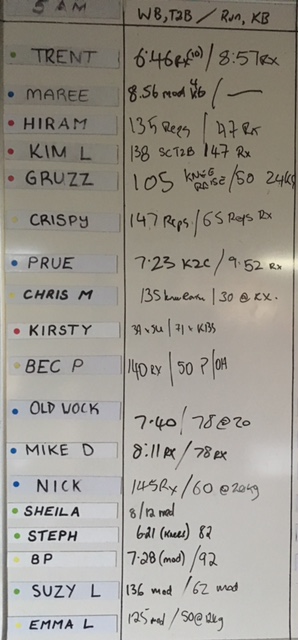 5 AM WB, T2B / Run, KB
TRENT 6:46 Rx (10) / 8:57 Rx
MAREE 8.56 mod / —
HIRAM 135 Reps / 47 Rx
KIM L 138 SCT2B 147 Rx
GRUZZ 105 KNEE RAISE / 50 24KG
CRISPY 147 Reps / 65 Reps Rx
PRUE 7.23 K2C / 9.52 Rx
CHRIS M 135 / 30 @ RX.
KIRSTY 71 + KBS
BEC P 140 RX / 50 ? / OH
OLD VOCK 7.40 / 78 @ 20
MIKE D 8:11 Rx / 78 RX
NICK 145 Rx / 60 @ 20kg
SHEILA 8/12 mod
STEPH 6.21 (knees) 82
BP 7.28 (mod) / 92
SUZY L 136 mod / 62 mod
EMMA L 125 mod / 50 @ 12kg